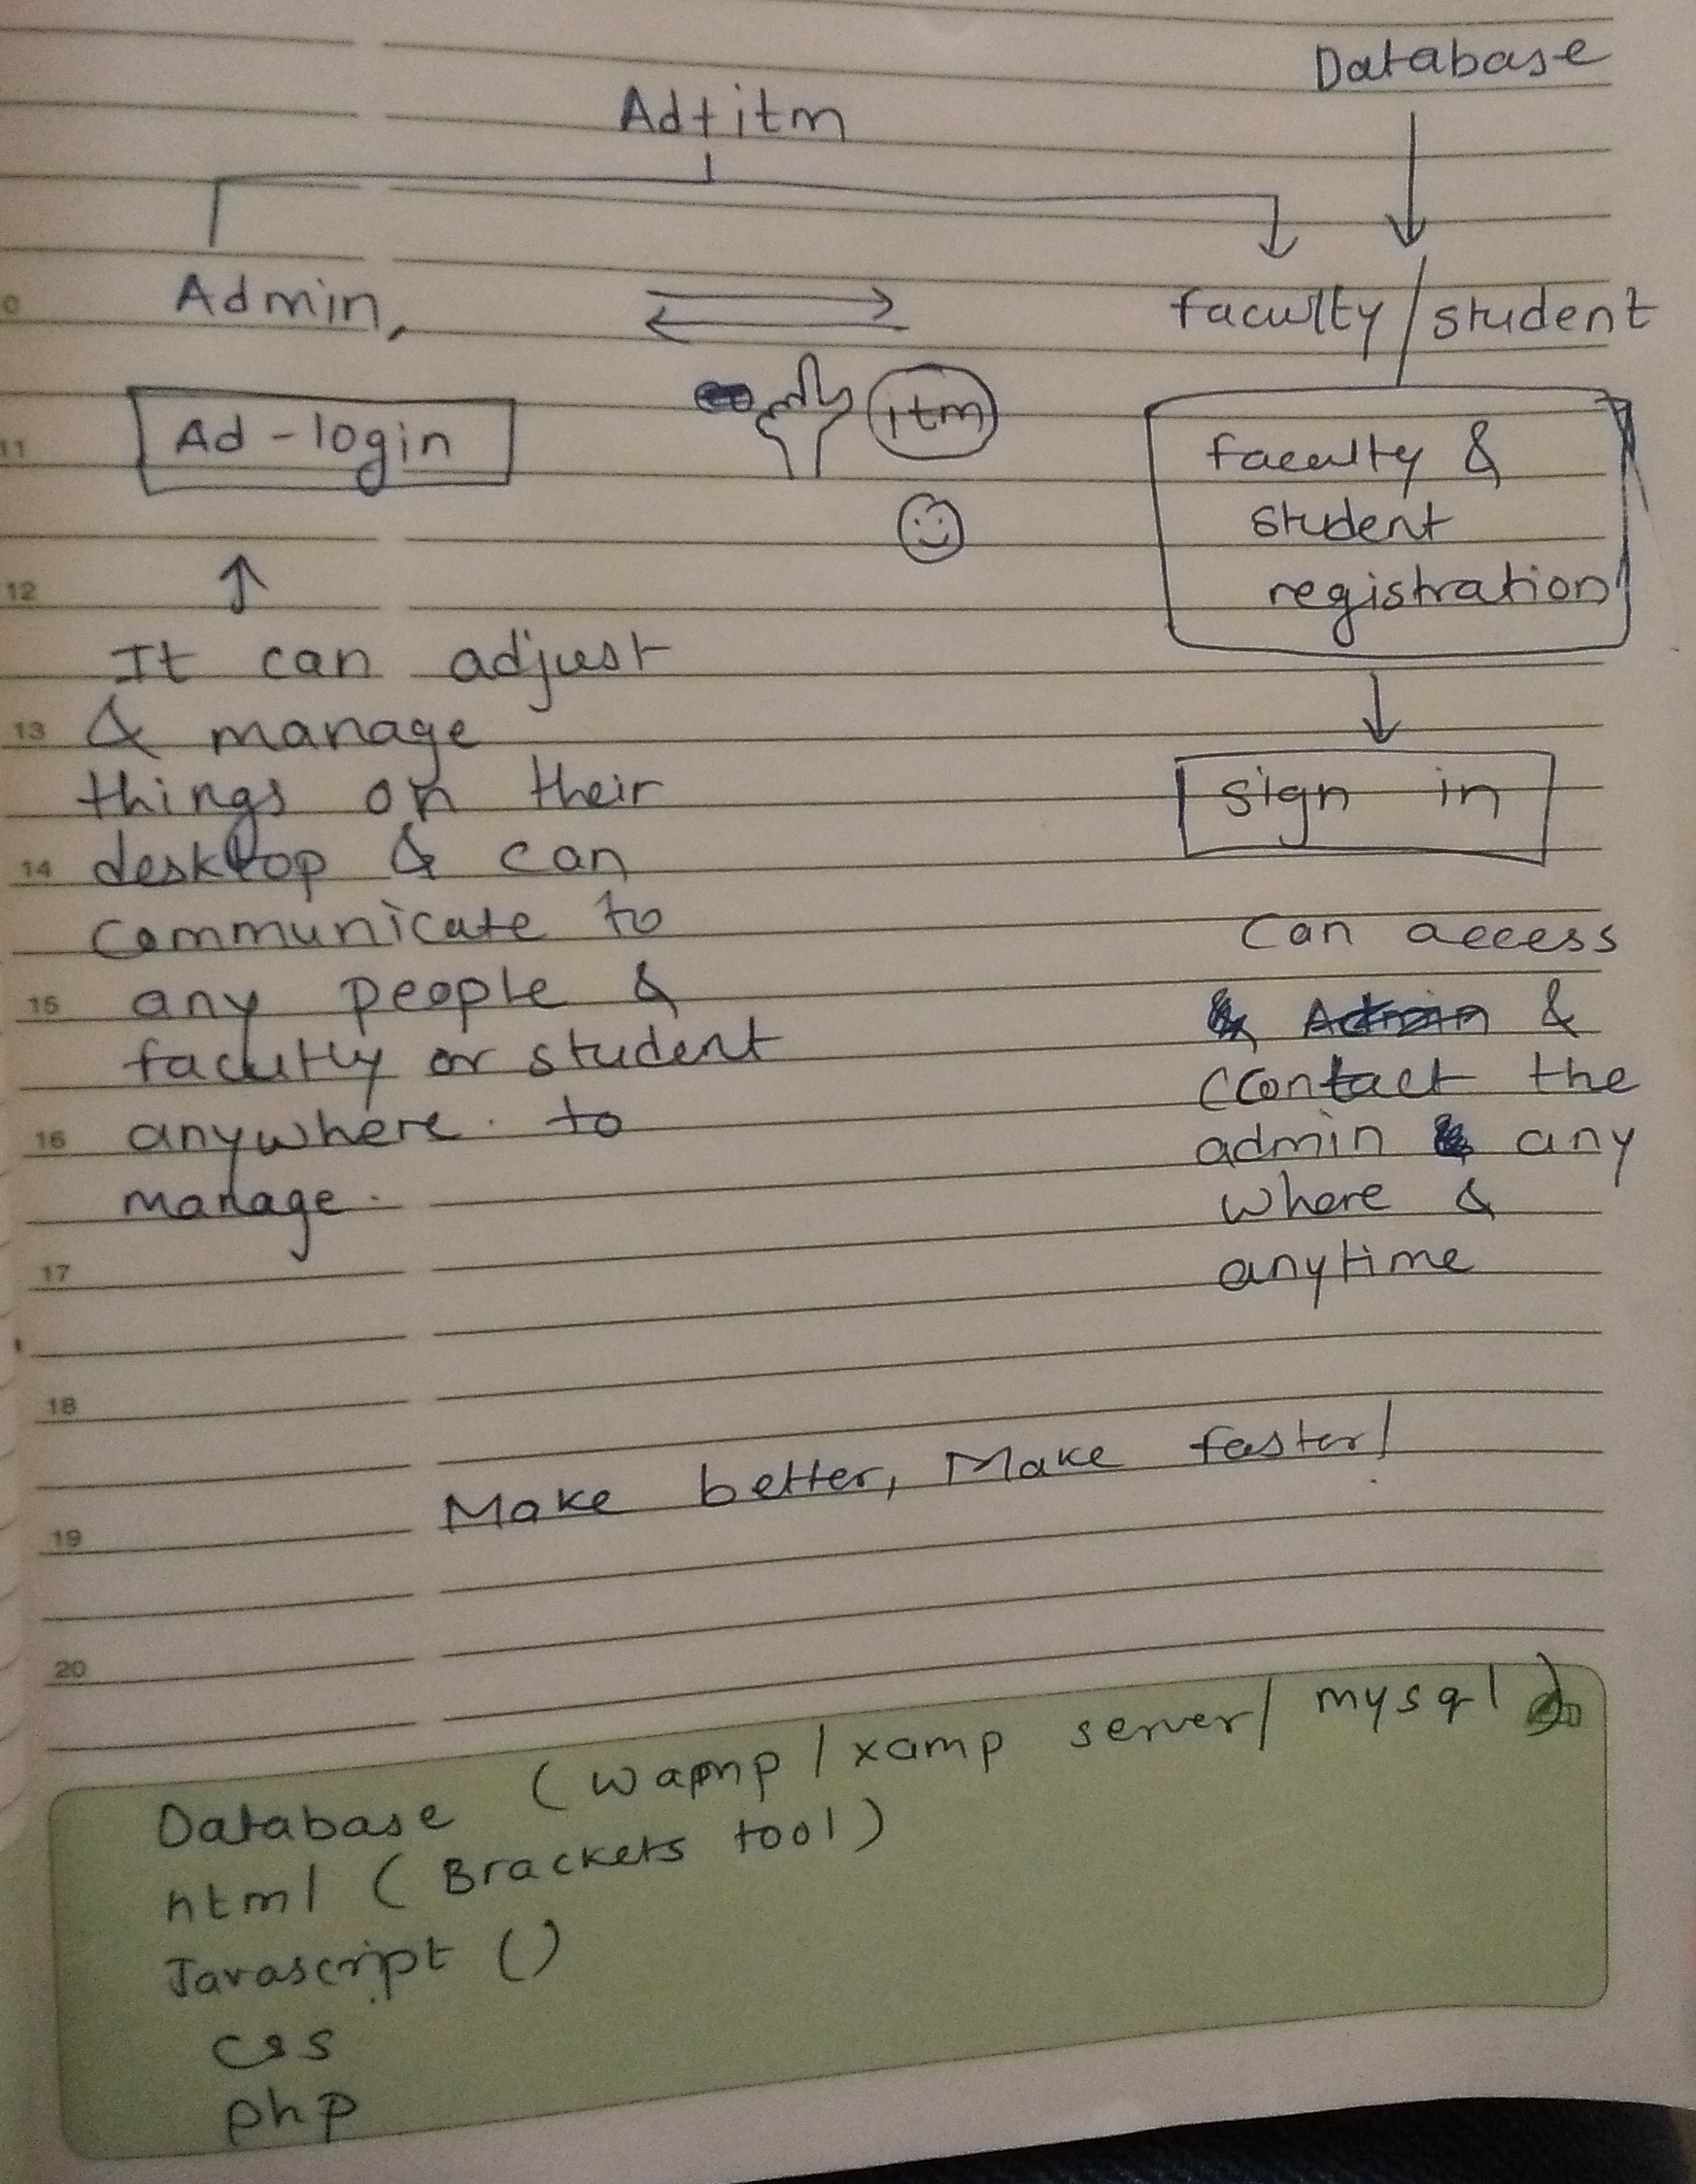 Database
Ad+itm
Admin,
faculty/student
Ad-login
itm
faculty &
student
registration
It can adjust
& manage
things on their
desktop & can
communicate to
any people &
facutly or student
anywhere. to
manage.
sign in
Can access
&
contact the
admin any
where &
anytime
Make better, Make faster!
Database (wamp/xamp server/mysql)
html (Brackets tool)
Javascript ()
css
php
11
12
13
14
15
16
17
18
19
20